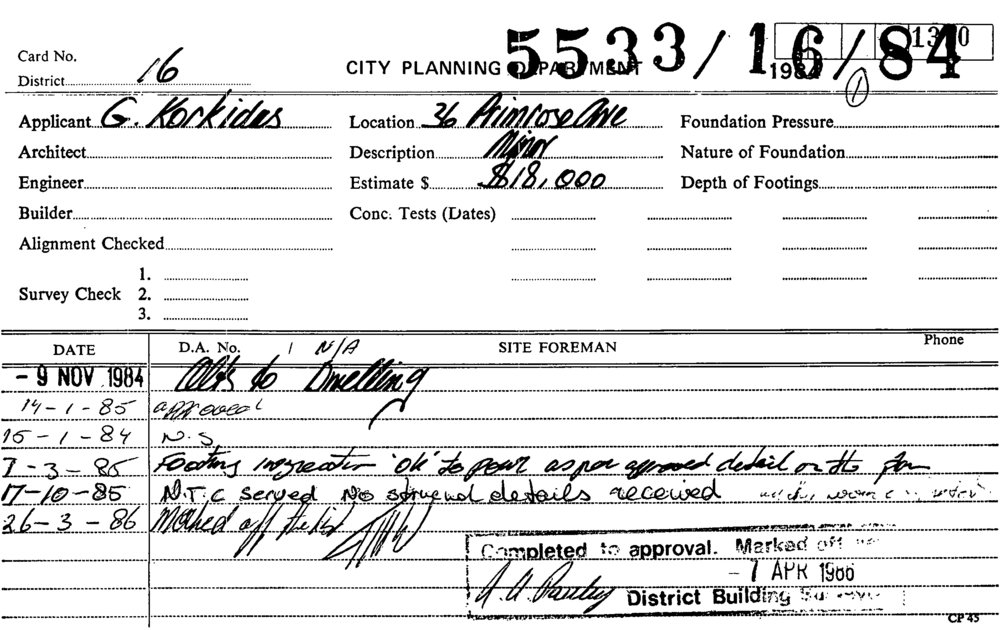 Card No.
District 16
CITY PLANNING DEPARTMENT
5533/16/84
1984
1
Applicant G. Korkidas
Location 36 Primrose Ave
Foundation Pressure
Architect
Description Minor
Nature of Foundation
Engineer
Estimate $ $18,000
Depth of Footings
Builder
Conc. Tests (Dates)
Alignment Checked
1.
Survey Check 2.
3.
DATE D.A. No. N/A SITE FOREMAN Phone
- 9 NOV 1984 Alts to Dwelling
14-1-85 approved
15-1-84 N.S
7-3-85 Footing inspection 'ok' to pour as per approved detail on the plan
17-10-85 N.T.C served No structural details received
26-3-86 Marked off the list
Completed to approval. Marked off
- 7 APR 1986
District Building Surveyor
CP 45